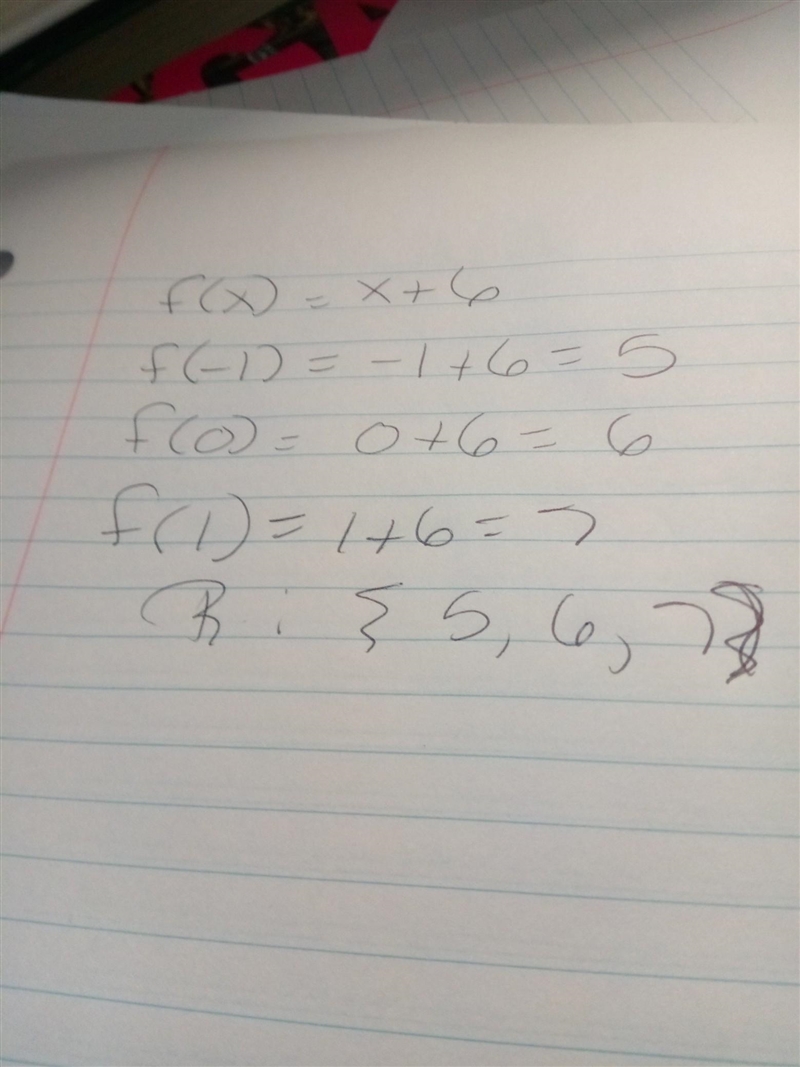 f(x) = x+6
f(-1) = -1+6 = 5
f(0) = 0+6 = 6
f(1) = 1+6 = 7
R : { 5, 6, 7}